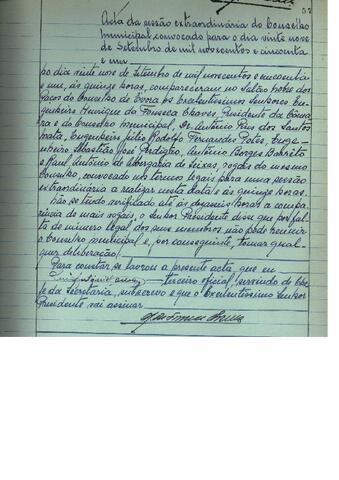 52
Acta da sessão extraordinária do Conselho
municipal, convocado para o dia vinte nove
de Setembro de mil novecentos e cincoenta
e um
No dia vinte nove de Setembro de mil novecentos e cincoenta
e um, às quinze horas, compareceram no Salão nobre dos
Paços do Concelho de Evora os Excelentissimos Senhores En-
genheiro Henrique da Fonseca Chaves, Presidente da Câma-
ra e do Conselho municipal, Dr. António Pires dos Santos
Mata, Engenheiro Júlio Rodolfo Fernandes Potes, Enge-
nheiro Sebastião José Perdigão, António Borges Barreto
e Raul António de Albergaria de Seixas, vogais do mesmo
Conselho, convocado nos termos legais para uma sessão
extraordinária a realizar nesta data e às quinze horas.
Não se tendo verificado até às dezasseis horas a compa-
rência de mais vogais, o Senhor Presidente disse que por fal-
ta de número legal dos seus membros não pode reunir
o Conselho municipal e, por conseguinte, tomar qual-
quer deliberação.
Para constar se lavrou a presente acta que eu
terceiro oficial, servindo de Che-
fe da Secretaria, subscrevo e que o Excelentissimo Senhor
Presidente vai assinar.